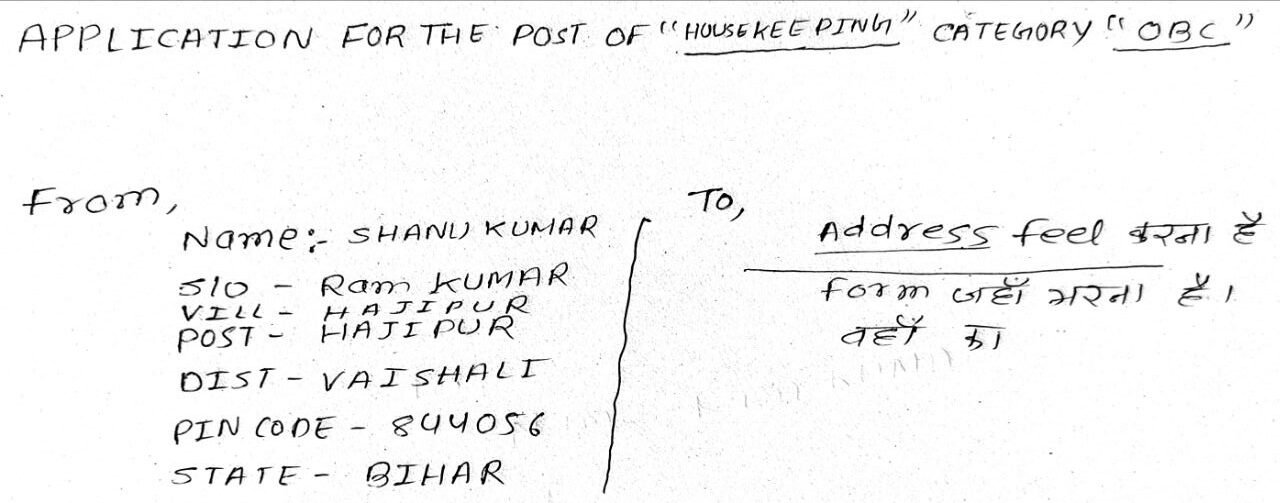 APPLICATION FOR THE POST OF "HOUSEKEEPING" CATEGORY "OBC"
From,
Name:- SHANU KUMAR
S/O - Ram KUMAR
VILL - HAJIPUR
POST - HAJIPUR
DIST - VAISHALI
PIN CODE - 844056
STATE - BIHAR
To,
Address feel करना है
form जहाँ भरना है।
वहाँ का